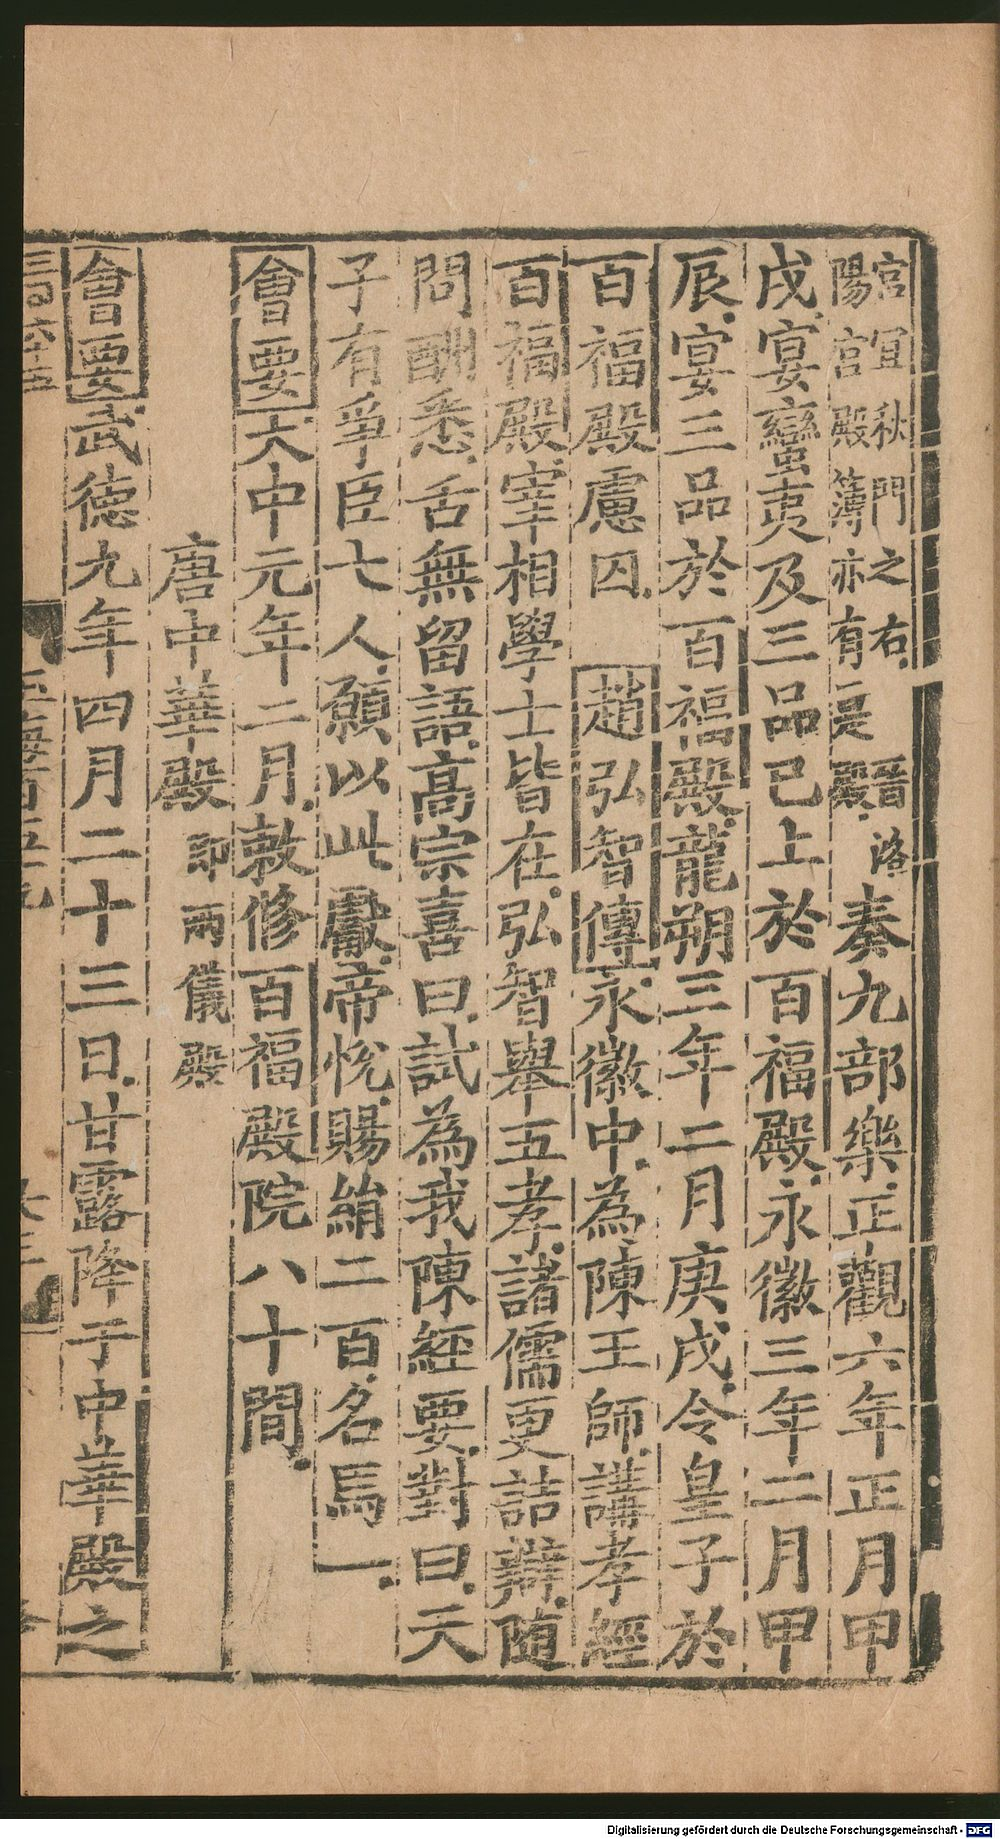 宮宜秋門之右晉洛
陽宮殿簿亦有是殿
奏九部樂正觀六年正月甲
戌宴蠻夷及三品已上於百福殿永徽三年二月甲
辰宴三品於百福殿龍朔三年二月庚戌令皇子於
百福殿慮囚 趙弘智傳永徽中為陳王師講孝經
百福殿宰相學士皆在弘智舉五孝諸儒更詰辯随
問酬悉舌無留語高宗喜曰試為我陳經要對曰天
子有爭臣七人願以此獻帝悅賜絹二百名馬一
會要大中元年二月敕修百福殿院八十間
唐中華殿 即兩儀殿
會要武德九年四月二十三日甘露降于中華殿之
Digitalisierung gefördert durch die Deutsche Forschungsgemeinschaft - DFG